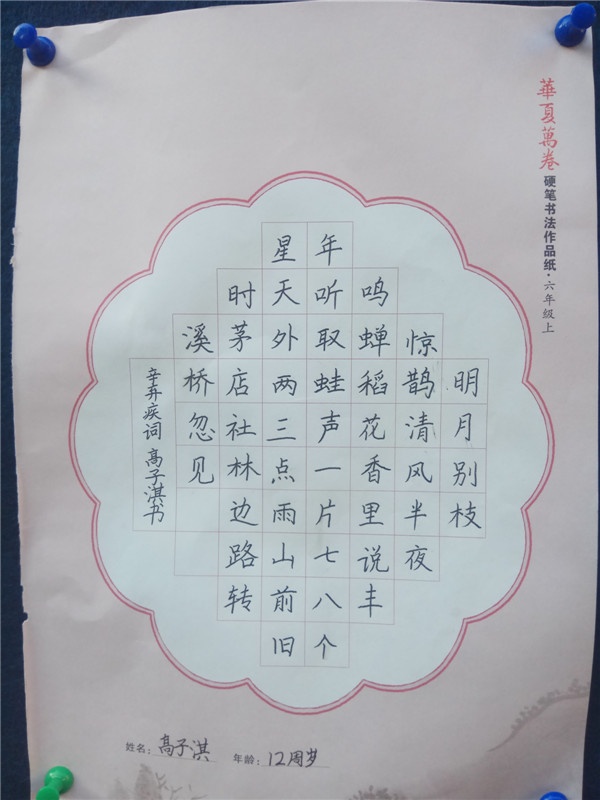 華夏萬卷 硬笔书法作品纸·六年级上
明月别枝
惊鹊清风半夜
鸣蝉稻花香里说丰
年听取蛙声一片七八个
星天外两三点雨山前旧
时茅店社林边路转
溪桥忽见
辛弃疾词 高子淇书
姓名：高子淇 年龄：12周岁